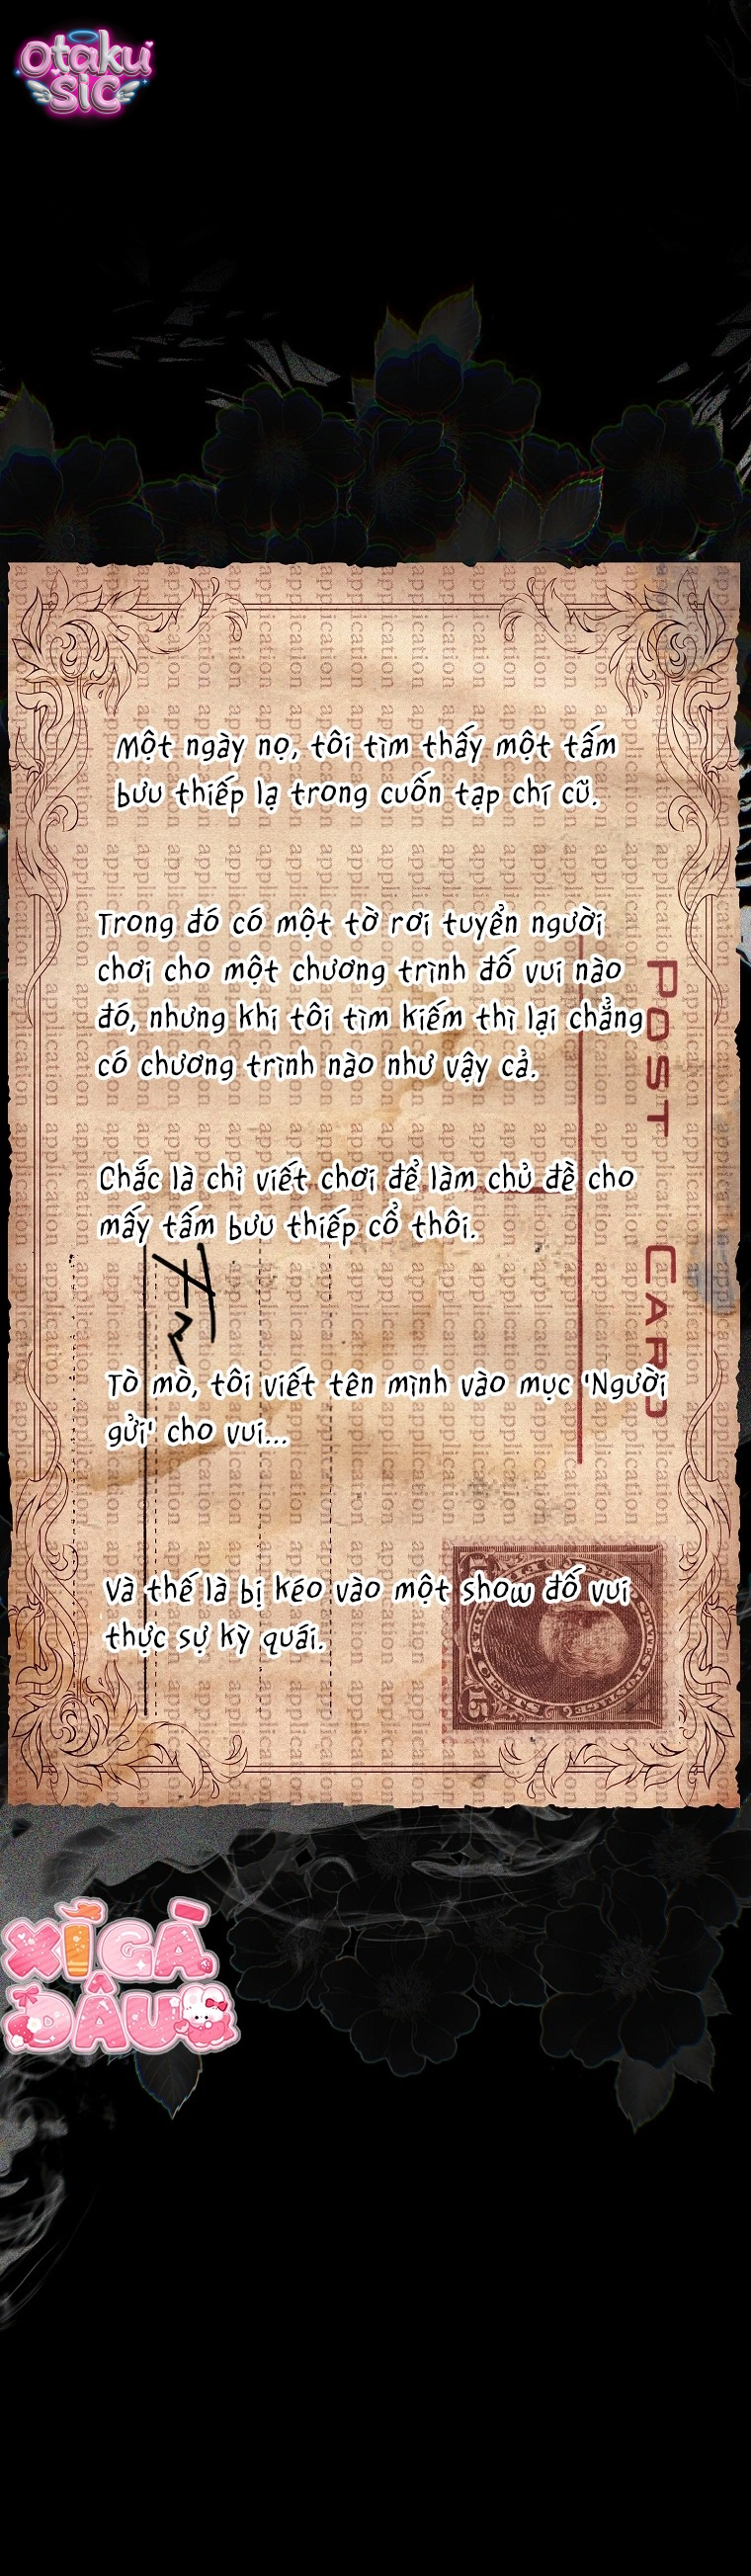 Otaku
SiC
Một ngày nọ, tôi tìm thấy một tấm
bưu thiếp lạ trong cuốn tạp chí cũ.
Trong đó có một tờ rơi tuyển người
chơi cho một chương trình đố vui nào
đó, nhưng khi tôi tìm kiếm thì lại chẳng
có chương trình nào như vậy cả.
POST CARD
Chắc là chỉ viết chơi để làm chủ đề cho
mấy tấm bưu thiếp cổ thôi.
Tò mò, tôi viết tên mình vào mục 'Người
gửi' cho vui...
Và thế là bị kéo vào một show đố vui
thực sự kỳ quái.
XÌ GÀ
DÂU